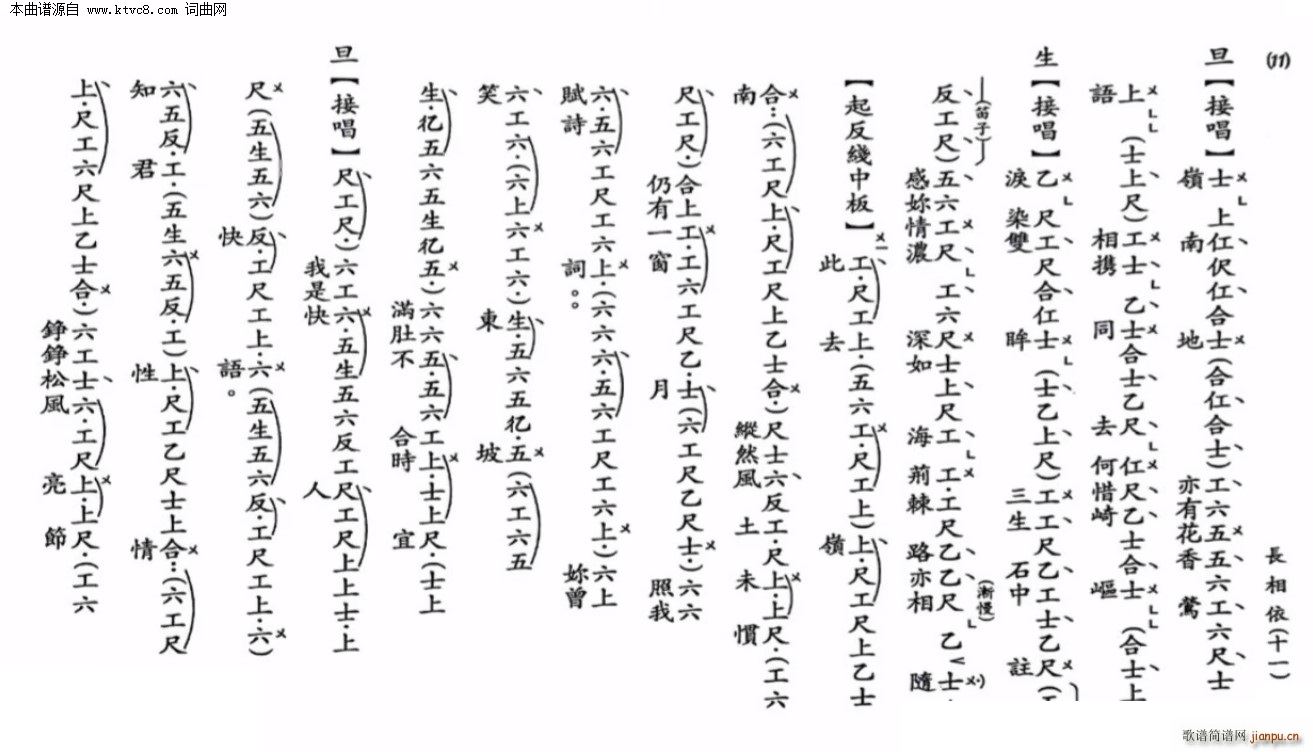 本曲谱源自 www.ktvc8.com 词曲网
(11)
長相依(十一)
旦【接唱】士 上仜伬仜合士(合仜合士)工六五五六工六尺士
嶺南地 亦有花香鶯
上(士上尺)工士乙士合士乙尺仜尺乙士合士(合士上
語 相携同去何惜崎嶇
生【接唱】乙尺工尺合仜士(士乙上尺)工工尺乙工士乙尺(工
淚染雙眸 三生石中註
(笛子)
(漸慢)
反工尺)五六工尺工六尺士上尺工工·工尺乙乙尺乙士·
感妳情濃深如海荊棘路亦相隨
【起反綫中板】工·尺工上·(五六工·尺工上)上·尺工尺上乙士
此去嶺
合·:(六工尺上·尺工尺上乙士合·)尺士六反工·尺上·上尺·(工六
南 縱然風土未慣
尺工尺·)合上工·工六工尺乙·士(六工尺乙尺士·)六六
仍有一窗月 照我
六·五六工尺工六上·(六六六·五六工尺工六上·)六上
賦詩詞。。 妳曾
六·工六·(六上六工六·)生·五六五仡·五(六工六五
笑東坡
生·仡五六五生仡五·)六六五·五六工上·士上尺·(士上
滿肚不合時宜
旦【接唱】尺工尺·)六工六·五生五六反工尺工尺上上士·上
我是快人
尺(五生五六)反·工尺工上·六(五生五六反·工尺工上·六)
快語。
六五反·工·(五生六五反·工)上·尺工乙尺士上合·:(六工尺
知君性情
上·尺工六尺上乙士合·)六工士六·工尺上·上尺·(工六
錚錚松風亮節
歌谱简谱网 jianpu.cn